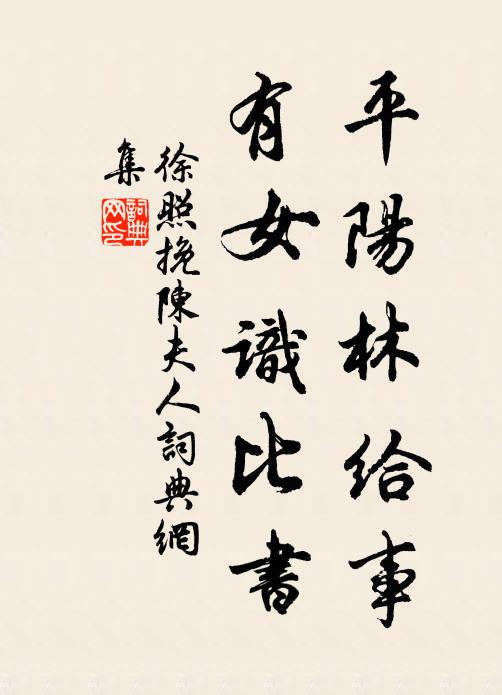 平陽林給事
有女識比書
徐照挽陳夫人詞典網
集
詞典網印